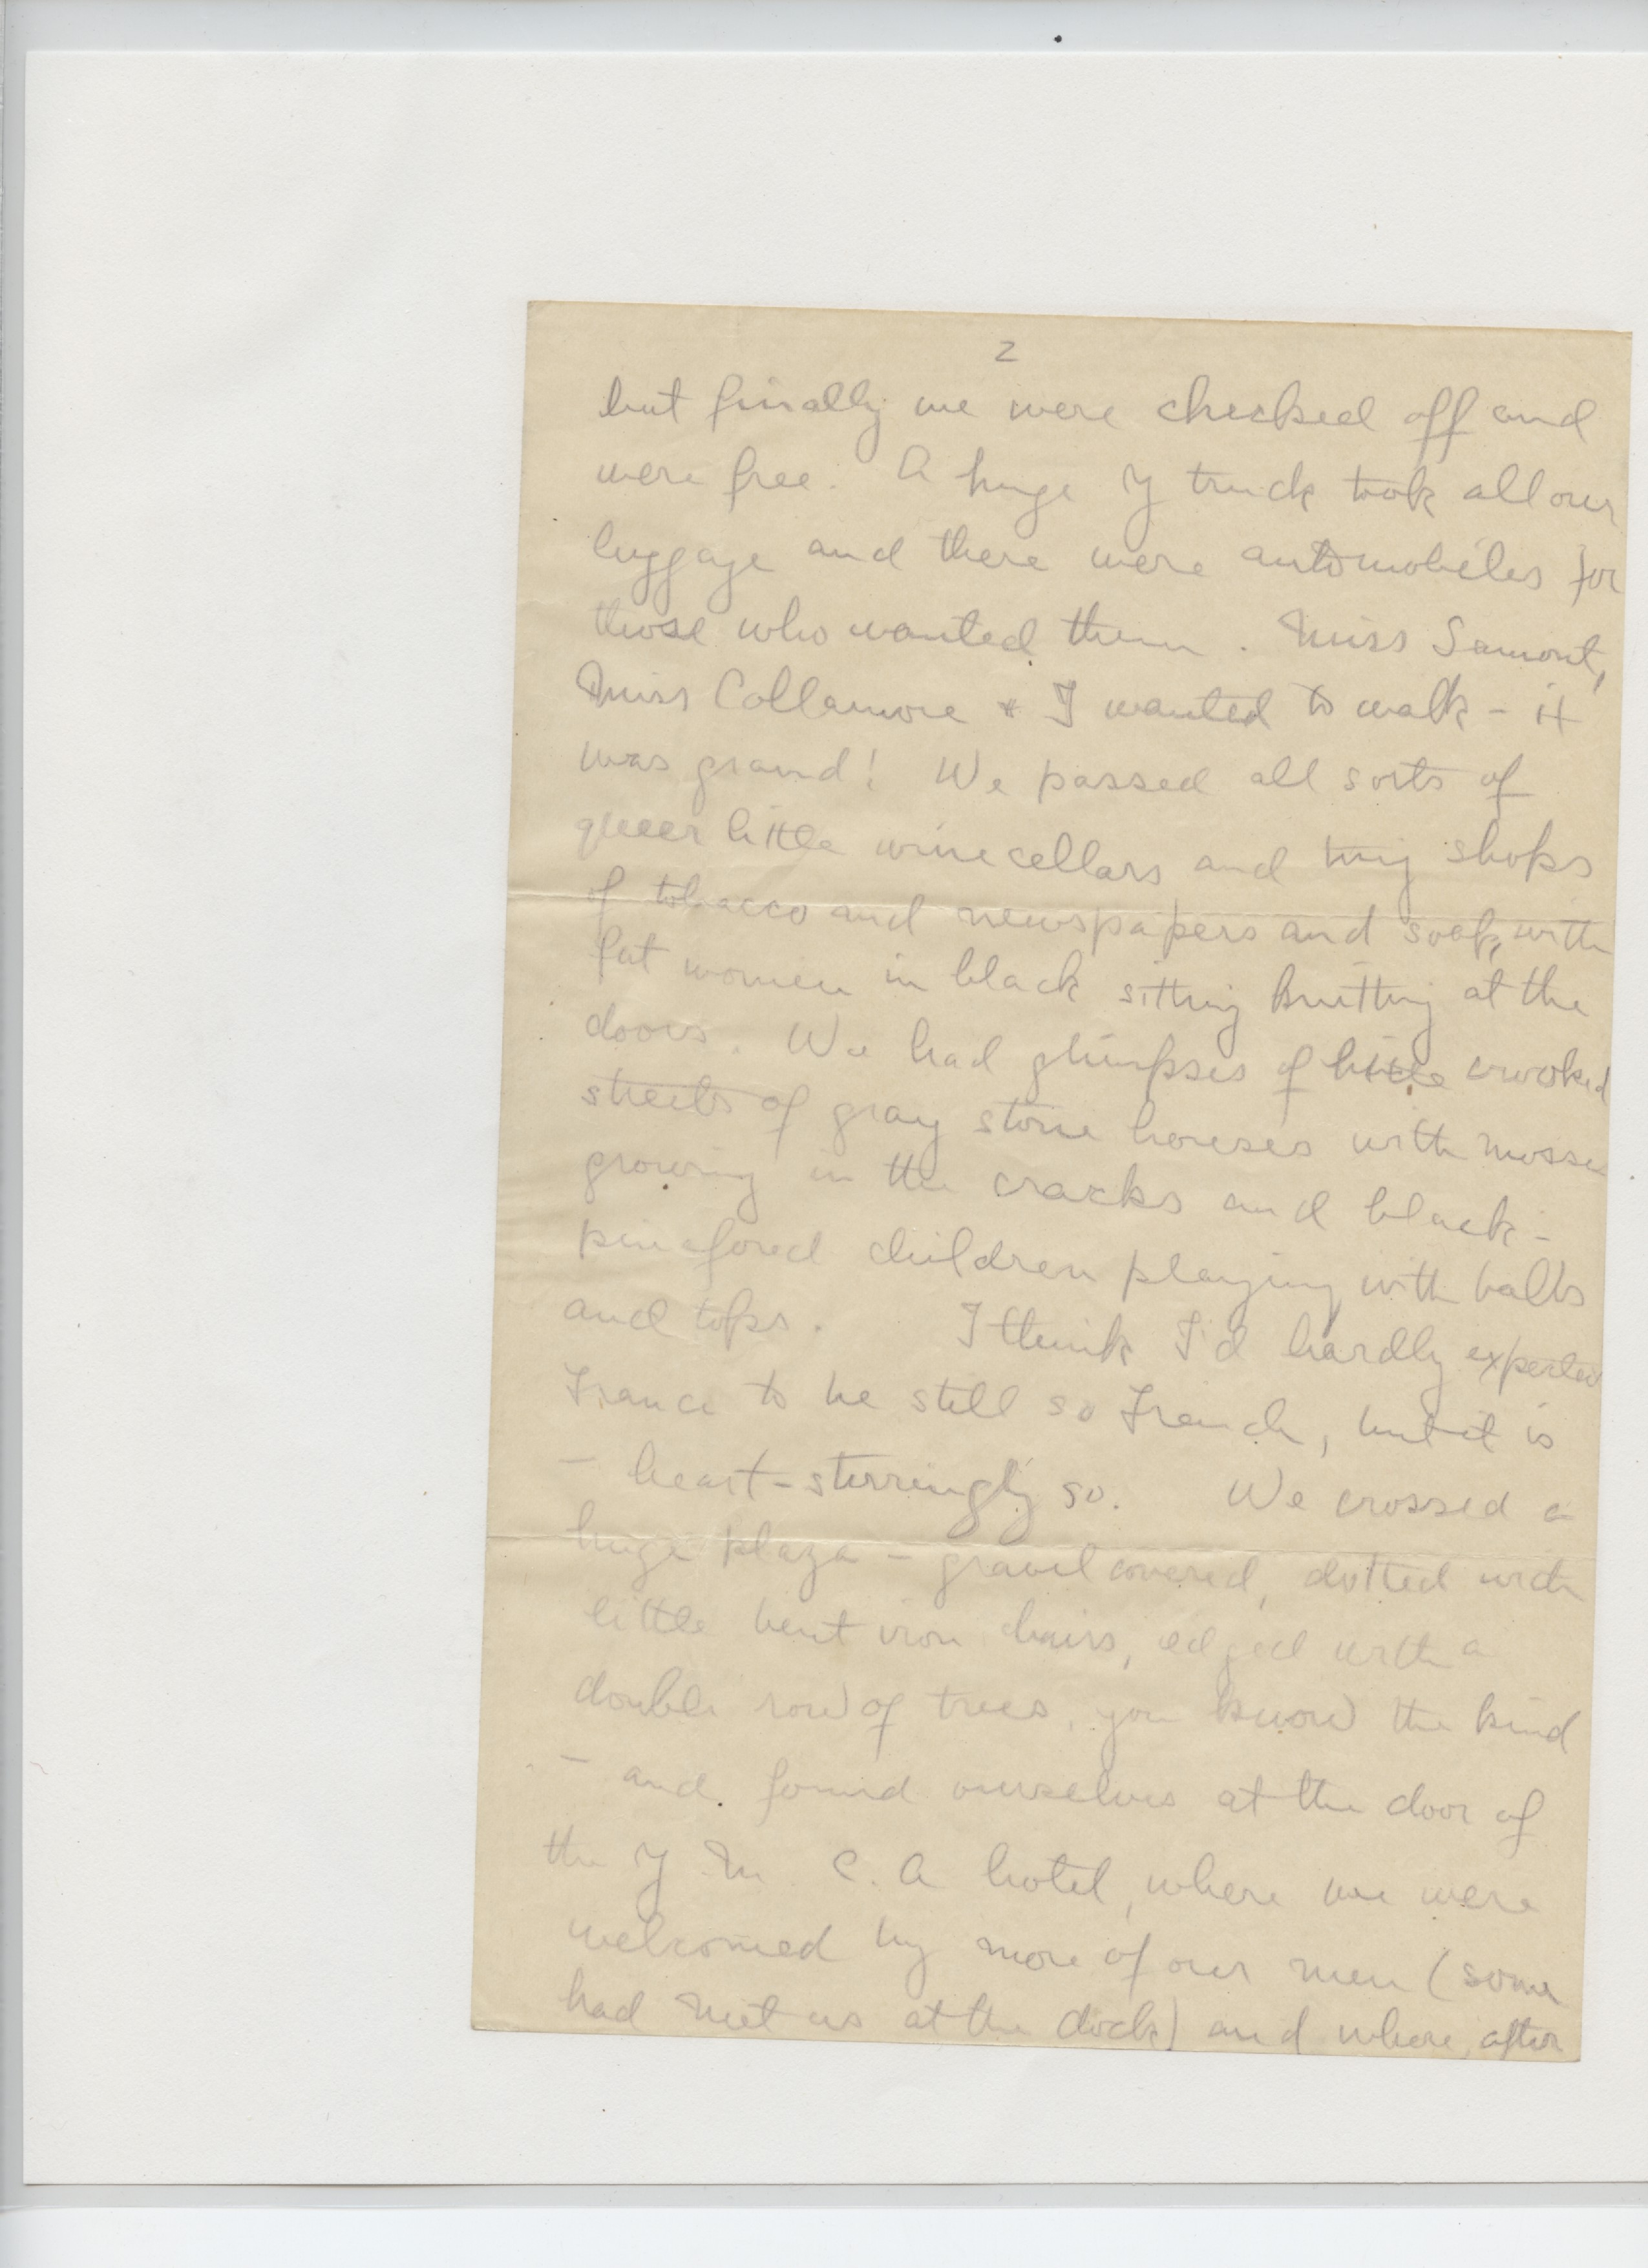 2
but finally we were checked off and
were free. A huge Y truck took all our
luggage and there were automobiles for
those who wanted them. Miss Lamont,
Miss Collamore & I wanted to walk - it
was grand! We passed all sorts of
queer little wine cellars and tiny shops
of tobacco and newspapers and soap, with
fat women in black sitting knitting at the
doors. We had glimpses of little crooked
streets of gray stone houses with mosses
growing in the cracks and black-
pinafored children playing with balls
and tops. I think I'd hardly expected
France to be still so French, but it is
- heart-stirringly so. We crossed a
huge plaza - gravel covered, dotted with
little bent iron chairs, edged with a
double row of trees, you know the kind
- and found ourselves at the door of
the Y M. C. A hotel, where we were
welcomed by more of our men (some
had met us at the dock) and where, after